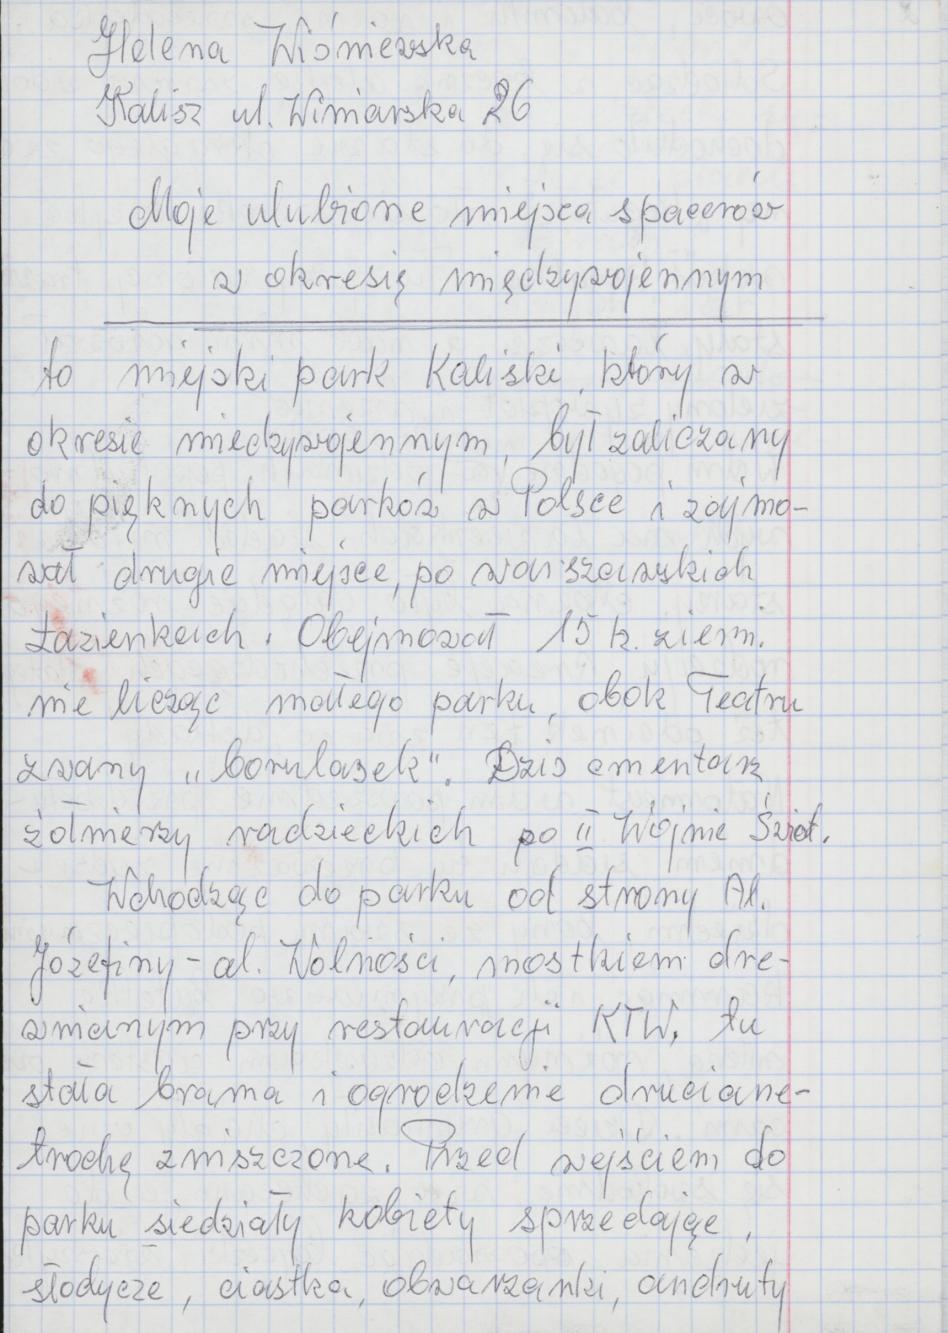 Helena Wiśniewska
Kalisz ul. Winiarska 26
Moje ulubione miejsca spacerów
w okresię międzywojennym
to miejski park Kaliski, który w
okresie miedzywojennym, był zaliczany
do pięknych parków w Polsce i zajmo-
wał drugie miejsce, po warszawskich
Łazienkach. Obejmował 15 h. ziemi.
nie licząc małego parku, obok Teatru
zwany „borulasek". Dzis cmentarz
żołnierzy radzieckich po II Wojnie Świat.
Wchodząc do parku od strony Al.
Józefiny - al. Wolności, mostkiem dre-
wnianym przy restauracji KTW, tu
stała brama i ogrodzenie druciane-
trochę zniszczone. Przed wejściem do
parku siedziały kobiety sprzedając,
słodycze, ciastka, obwarzanki, andruty